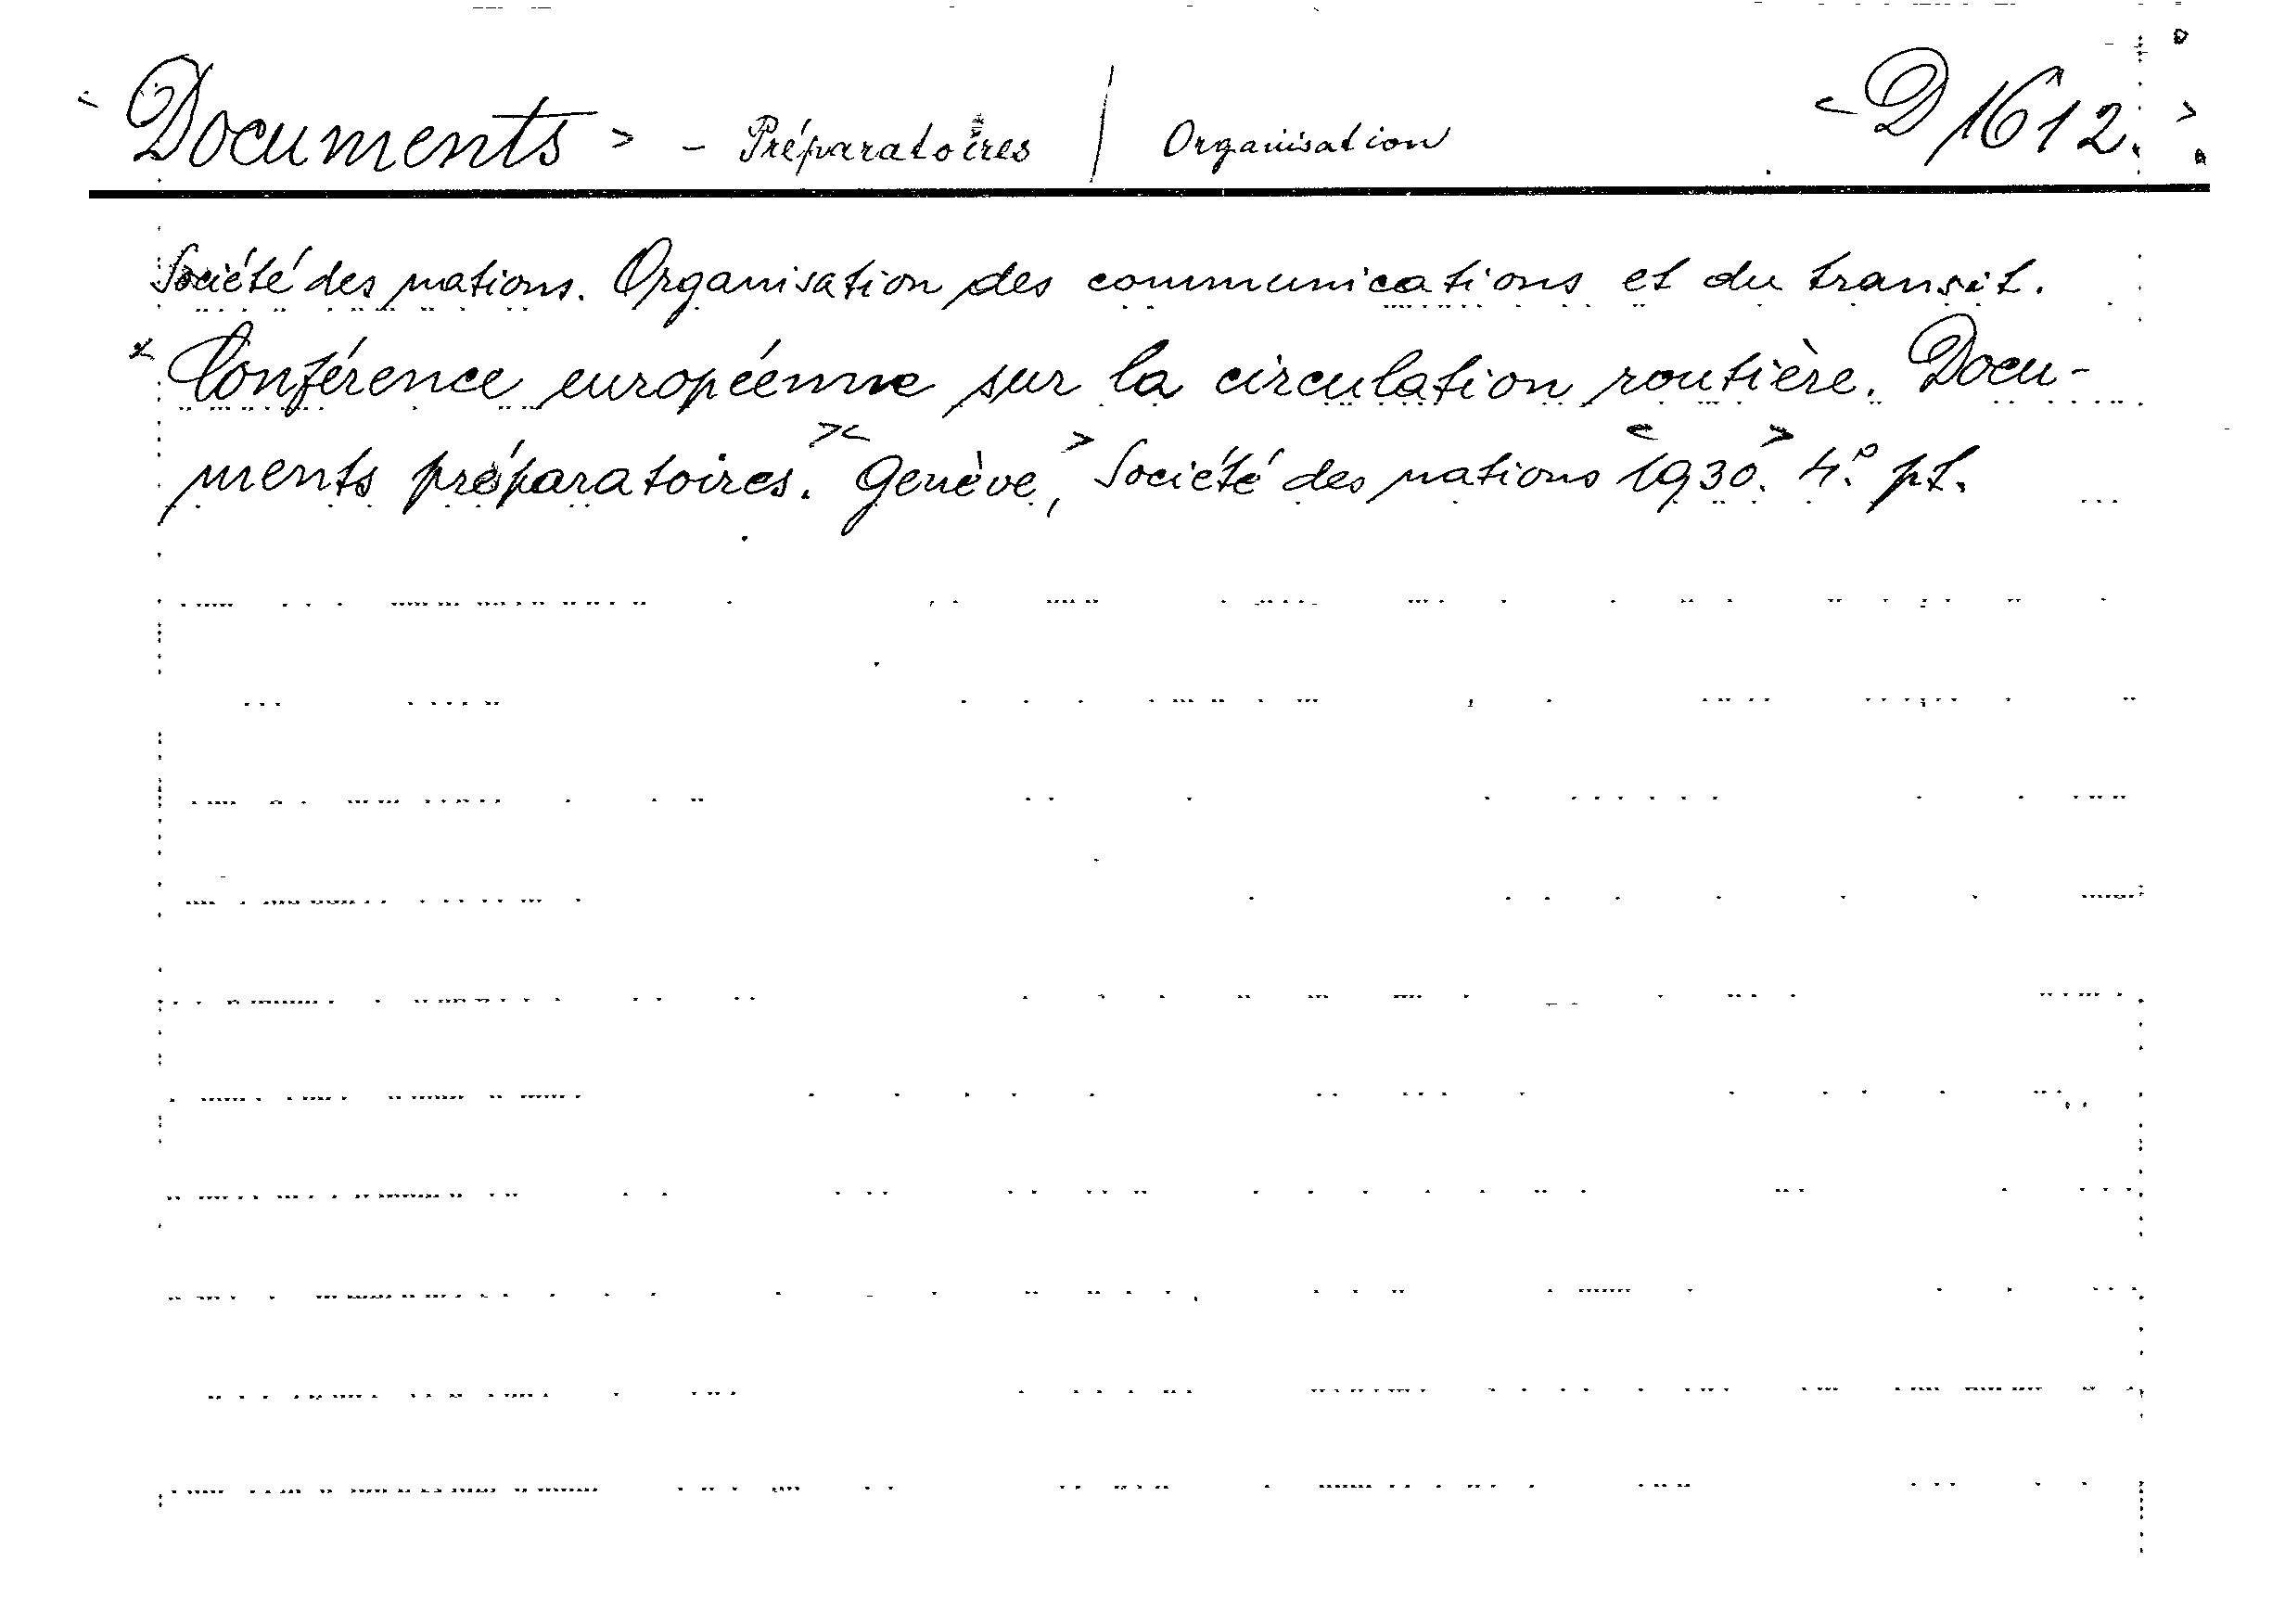 < Documents > - Préparatoires / Organisation < D 1612. >
Société des nations. Organisation des communications et du transit.
* Conférence européenne sur la circulation routière. Docu-
ments préparatoires. >< Genève, > Société des nations < 1930. > 4.° pt.